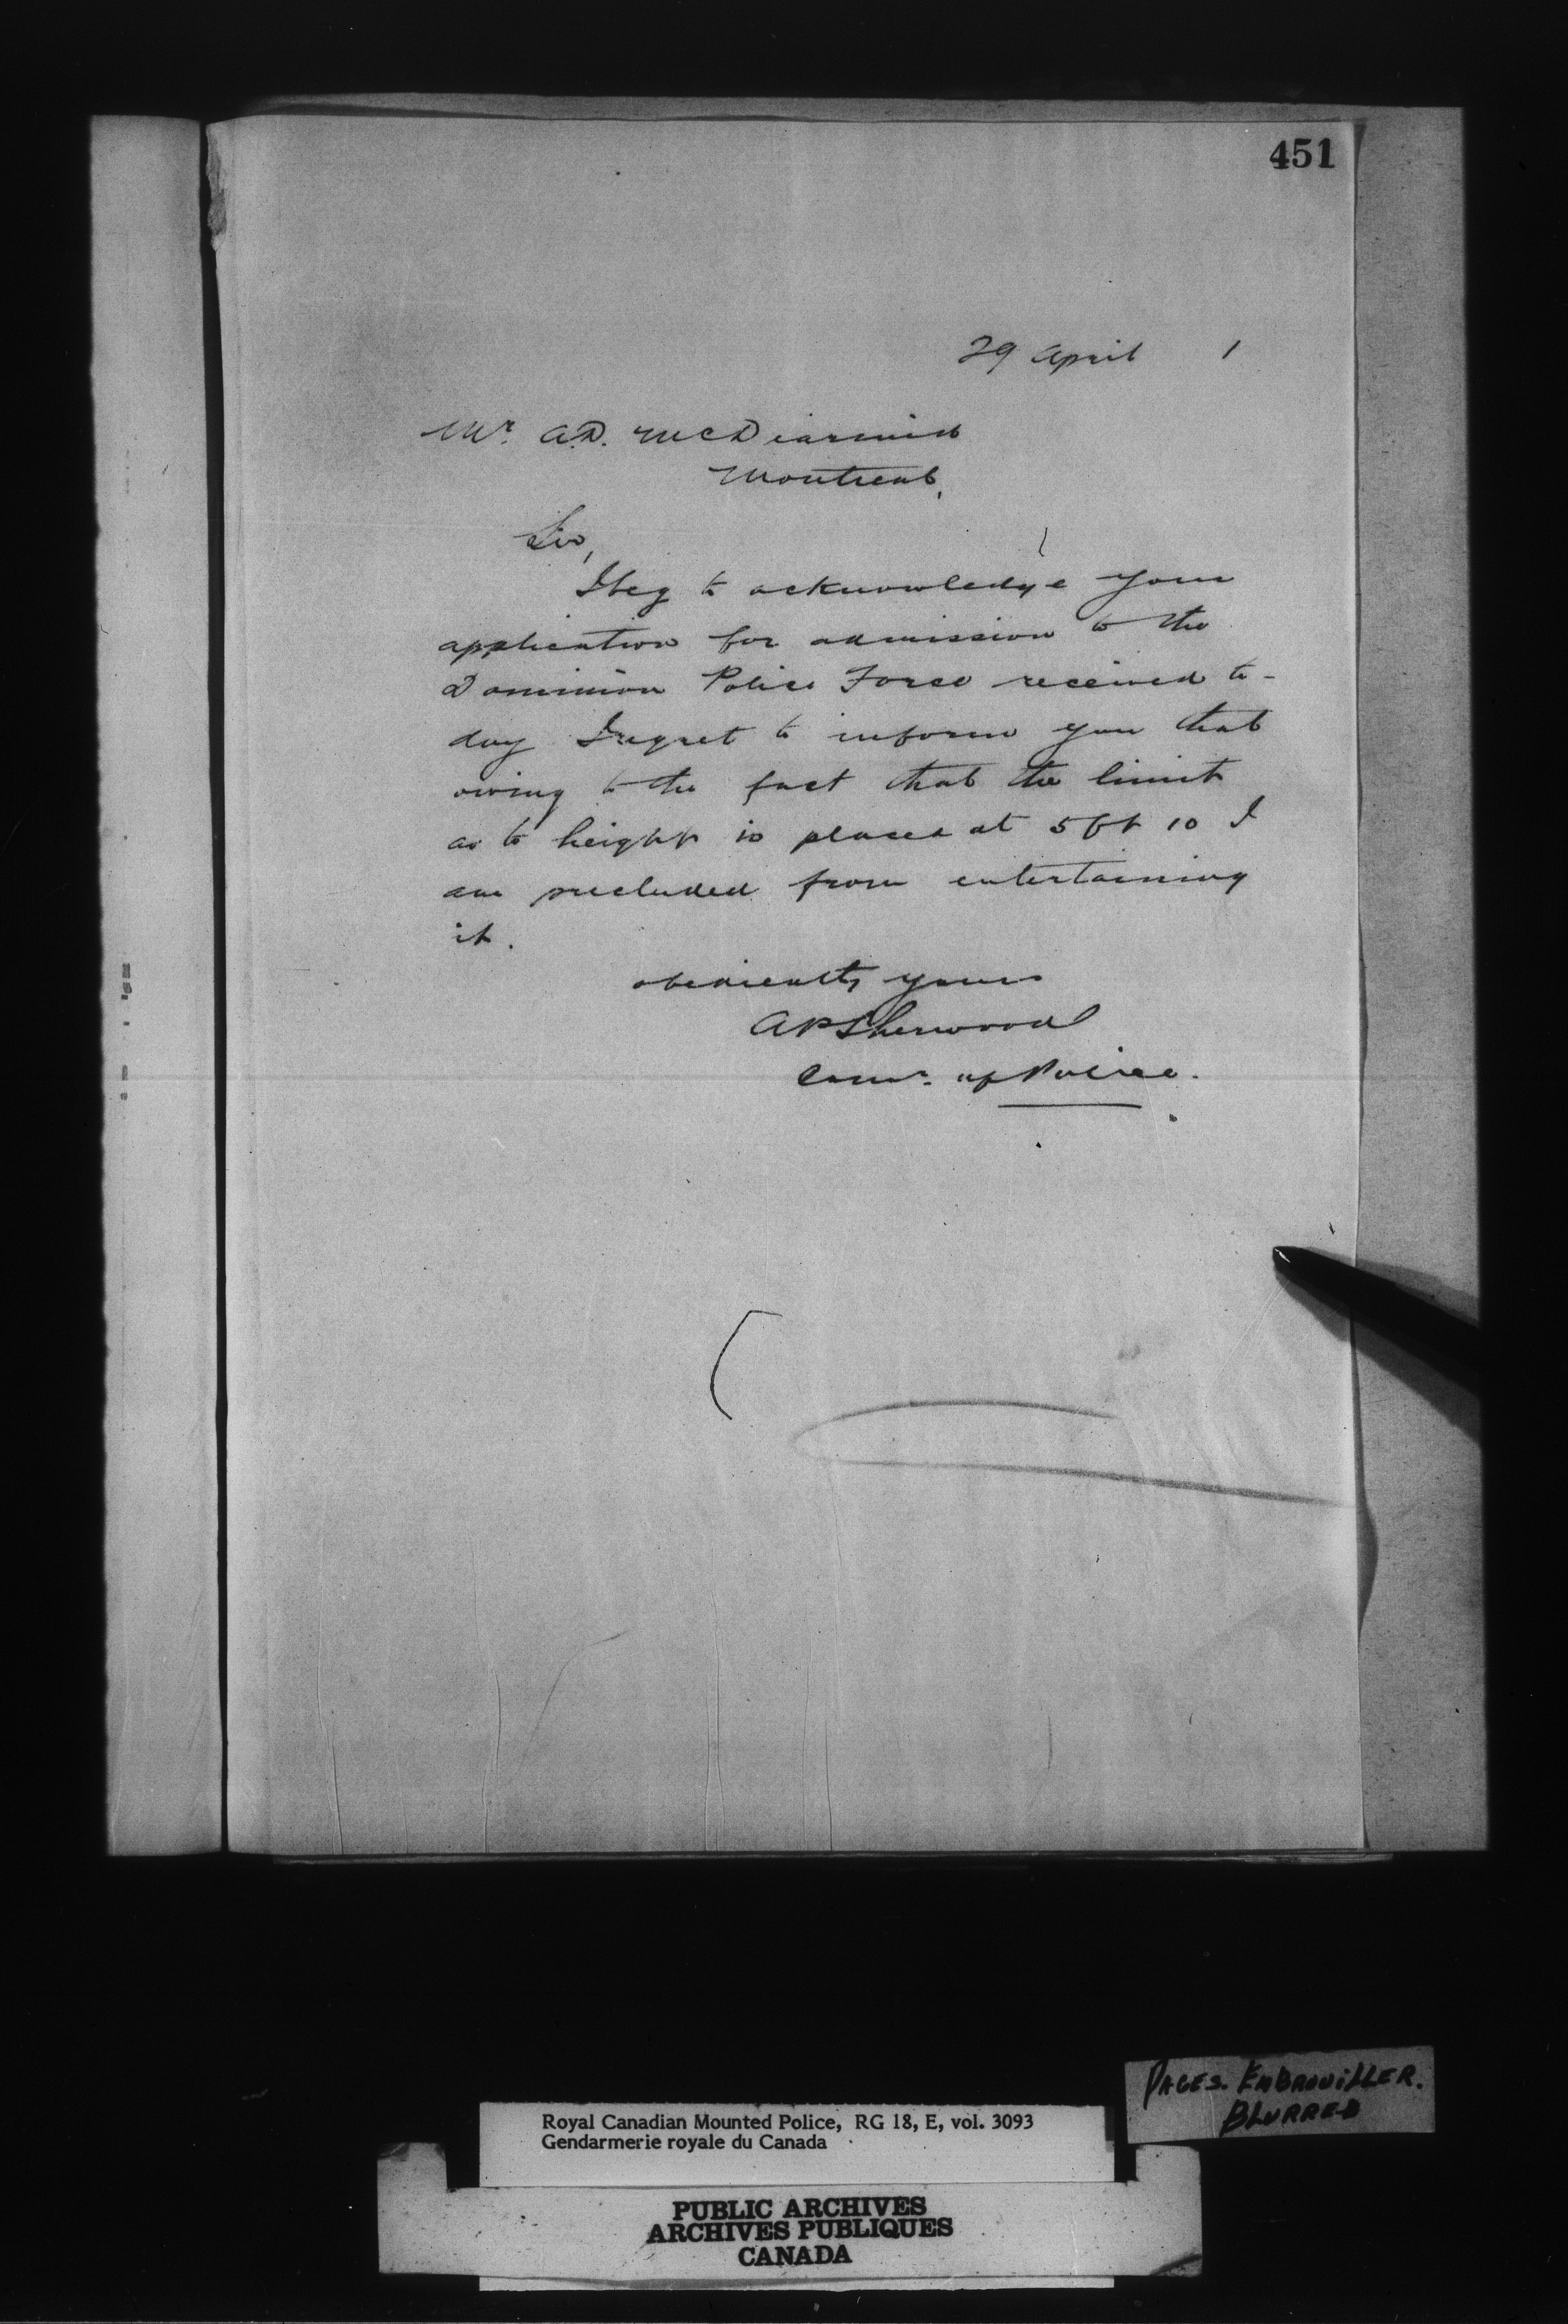 451
29 April 1
Mr. A.D. McDiarmid
Montreal,
Sir,
I beg to acknowledge your
application for admission to the
Dominion Police Force received to-
day I regret to inform you that
owing to the fact that the limit
as to height is placed at 5 ft 10 I
am precluded from entertaining
it.
obediently yours
APSherwood
Comr. of Police.
PAGES. EMBROUILLER.
BLURRED
Royal Canadian Mounted Police, RG 18, E, vol. 3093
Gendarmerie royale du Canada
PUBLIC ARCHIVES
ARCHIVES PUBLIQUES
CANADA